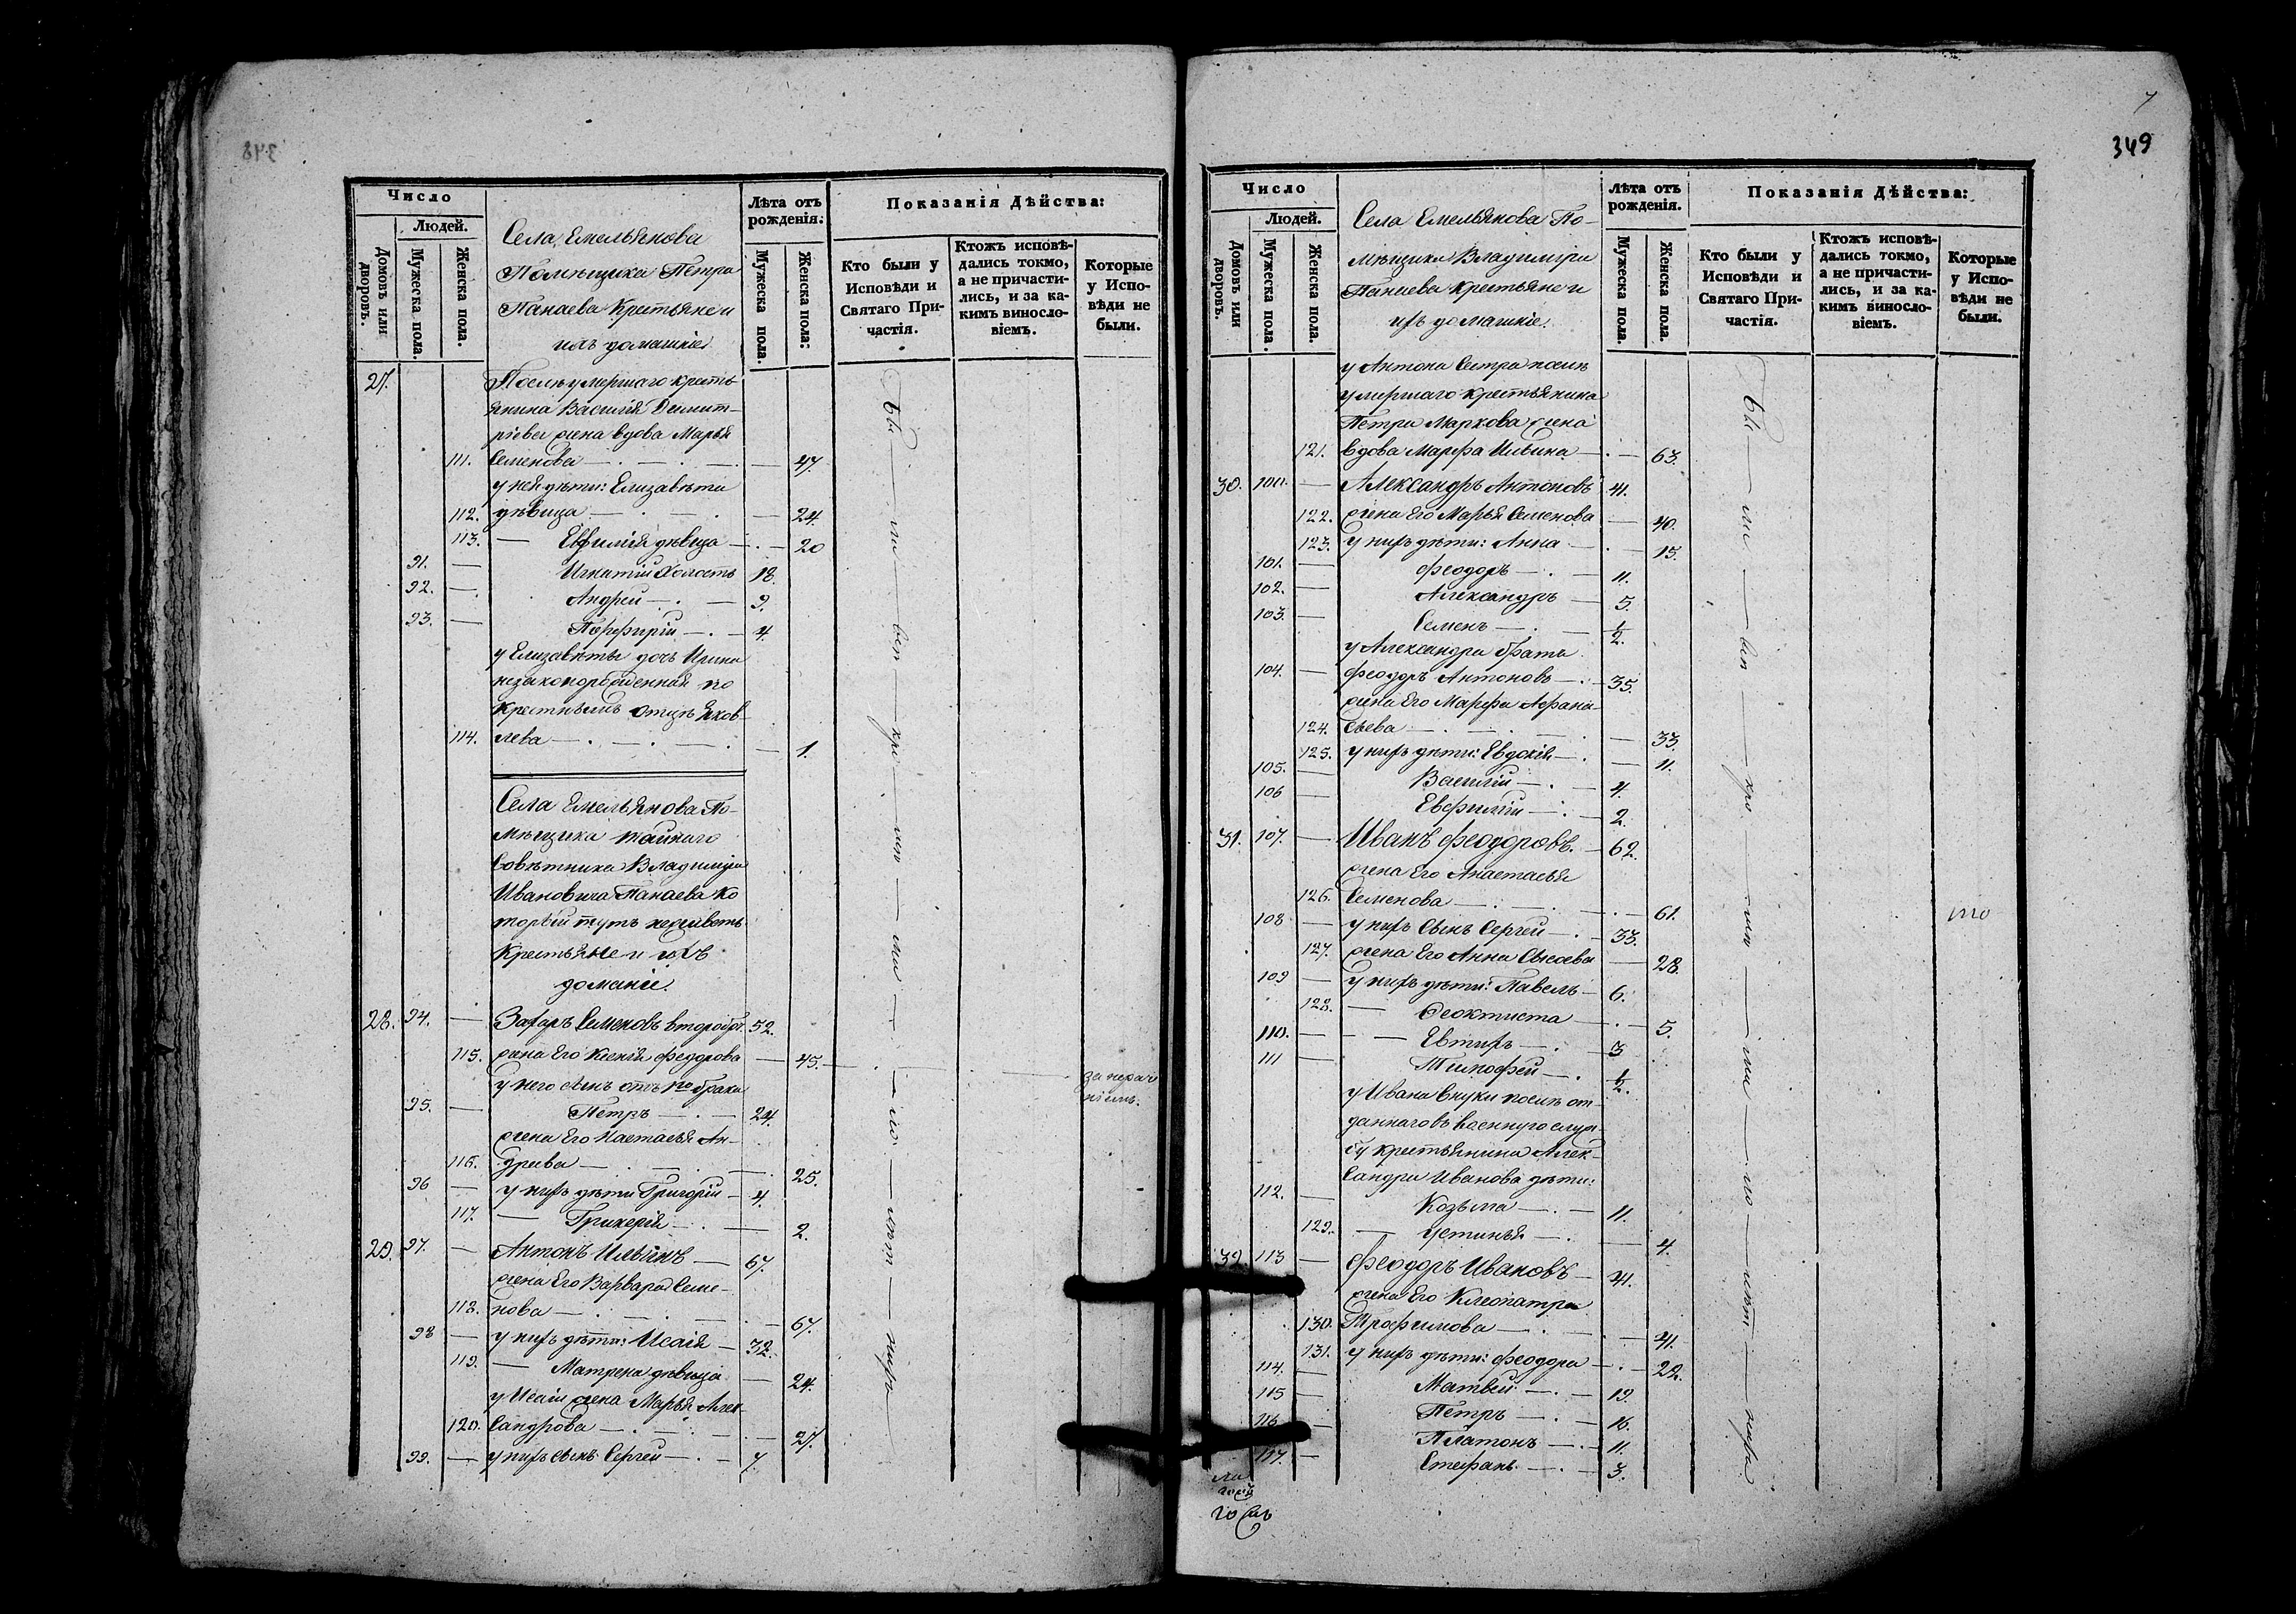 348
Число
Людей.
Домовъ или дворовъ.
Мужеска пола.
Женска пола.
Села Емельянова
Помѣщика Петра
Панаева Крестьяне и
ихъ домашніе
Лѣта отъ рожденія.
Мужеска пола.
Женска пола:
Показанія Дѣйства:
Кто были у Исповѣди и Святаго Причастія.
Ктожъ исповѣдались токмо, а не причастились, и за какимъ винословіемъ.
Которые у Исповѣди не были.
27. Послѣ умершаго кресть
янина Василія Демит-
ріева жена вдова Марья
111. Семенова — 47.
у нея дѣти: Елизавета
112. дѣвица — 24.
113. — Евфимія дѣвица — 20
91. — Игнатій Холостъ 18.
92. — Андрей — 9.
93. — Порфирій — 4.
у Елизаветы дочь Ирина
незаконорожденная по
крестнымъ отцѣ Яков-
114. лева — 1.
Села Емельянова По-
мѣщика тайнаго
Совѣтника Владиміра
Ивановича Панаева ко
торый тутъ неживетъ
Крестьяне и ихъ
доманіе.
28. 94. — Захаръ Семеновъ второбр. 52.
115. жена Его Ксенія Федорова — 45. —
у него сынъ отъ 1го брака
95. — Петръ — 24.
жена Его Настасья Ан-
116. дреева — 25.
96 — у нихъ дѣти Григорій — 4.
117. — Гликерія — 2.
29. 97. — Антонъ Ильинъ — 67.
жена Его Варвара Семе-
118. нова — 67.
98 — у нихъ дѣти: Исаія — 32.
119. — Матрена дѣвица — 24.
у Исаіи жена Марья Алек-
120. сандрова — 27.
99. — у нихъ сынъ Сергей — 7.
7
349
Число
Людей.
Домовъ или дворовъ.
Мужеска пола.
Женска пола.
Села Емельянова По-
мѣщика Владиміра
Панаева крестьяне и
ихъ домашніе.
Лѣта отъ рожденія.
Мужеска пола.
Женска пола.
Показанія Дѣйства:
Кто были у Исповѣди и Святаго Причастія.
Ктожъ исповѣдались токмо, а не причастились, и за какимъ винословіемъ.
Которые у Исповѣди не были.
у Антона Сестра послѣ
умершаго крестьянина
Петра Маркова жена
121. вдова Марфа Ильина — 63.
30. 100. — Александръ Антоновъ 41.
122. жена Его Марья Семенова — 40.
123. у нихъ дѣти: Анна — 15.
101. — Феодоръ — 11.
102. — Александръ — 5.
103. — Семенъ — 1/2.
у Александра братъ
104. — Феодоръ Антоновъ — 35.
жена Его Марфа Афана-
124. сьева — 33.
125. у нихъ дѣти: Евдокія — 11.
105. — Василій — 4.
106 — Евфимій — 2.
31. 107. — Иванъ Феодоровъ. — 62.
жена Его Анастасья
126. Семенова — 61.
108 — у нихъ Сынъ Сергей — 33.
127. жена Его Анна Сысоева — 28.
109 — у нихъ дѣти: Павелъ — 6.
128. — Феоктиста — 5.
110. — Евтихъ — 3
111 — Тимофей — 1/2.
у Ивана внуки послѣ от-
даннаго въ военную служ-
бу крестьянина Алек-
сандра Иванова дѣти:
112. — Козьма — 11.
129. — Устинья — 4.
32. 113 — Феодоръ Ивановъ — 41.
жена Его Клеопатра
130. Трофимова — 41.
131. у нихъ дѣти: Феодора — 22.
114. — Матвей — 19.
115 — Петръ — 16.
116 — Платонъ — 11.
117. — Стефанъ — 3.